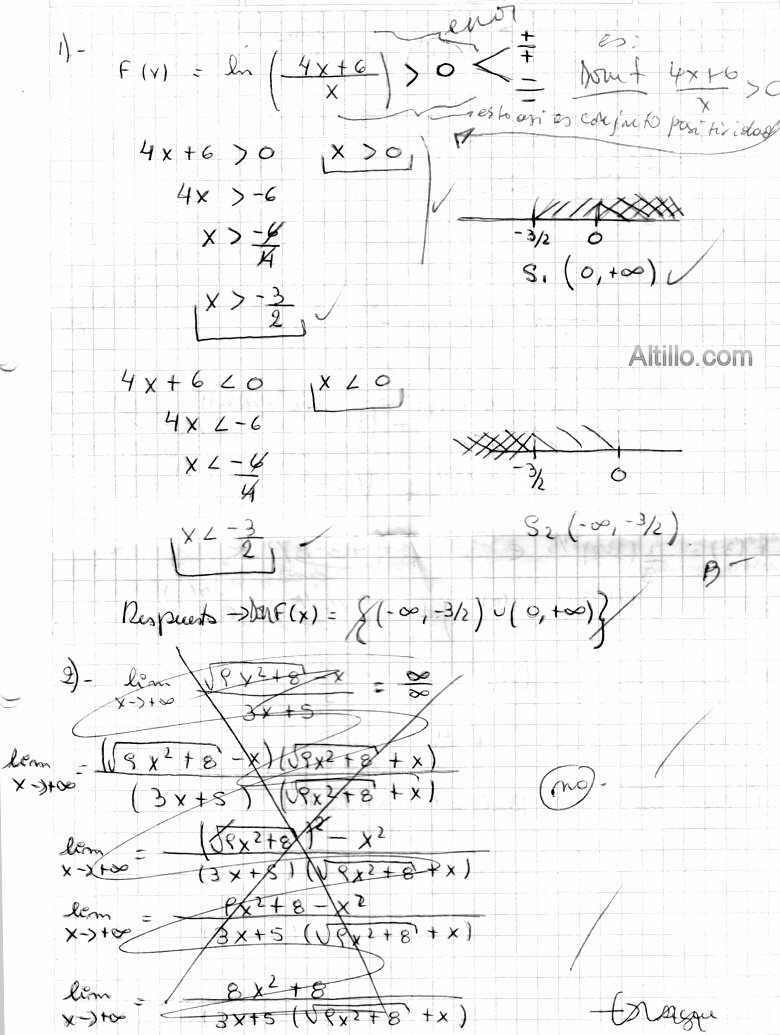 error
1)- F(x) = ln (4x+6/x) > 0 < +/+ -/-
es:
Dom f 4x+6/x > 0
esto así es conjunto positividad
4x+6 > 0 x > 0
4x > -6
x > -6/4
-3/2 0
S₁ (0, +∞)
x > -3/2
Altillo.com
4x+6 < 0 x < 0
4x < -6
x < -6/4
-3/2 0
x < -3/2
S₂ (-∞, -3/2)
B-
Respuesta → Dom F(x) = {(-∞, -3/2) ∪ (0, +∞)}
2)- lim x→+∞ √9x²+8 - x / 3x+5 = ∞/∞
lim x→+∞ = (√9x²+8 - x)(√9x²+8 + x) / (3x+5) (√9x²+8 + x)
no-
lim x→+∞ = (√9x²+8)² - x² / (3x+5) (√9x²+8 + x)
lim x→+∞ = 9x²+8 - x² / 3x+5 (√9x²+8 + x)
lim x→+∞ = 8x²+8 / 3x+5 (√9x²+8 + x)